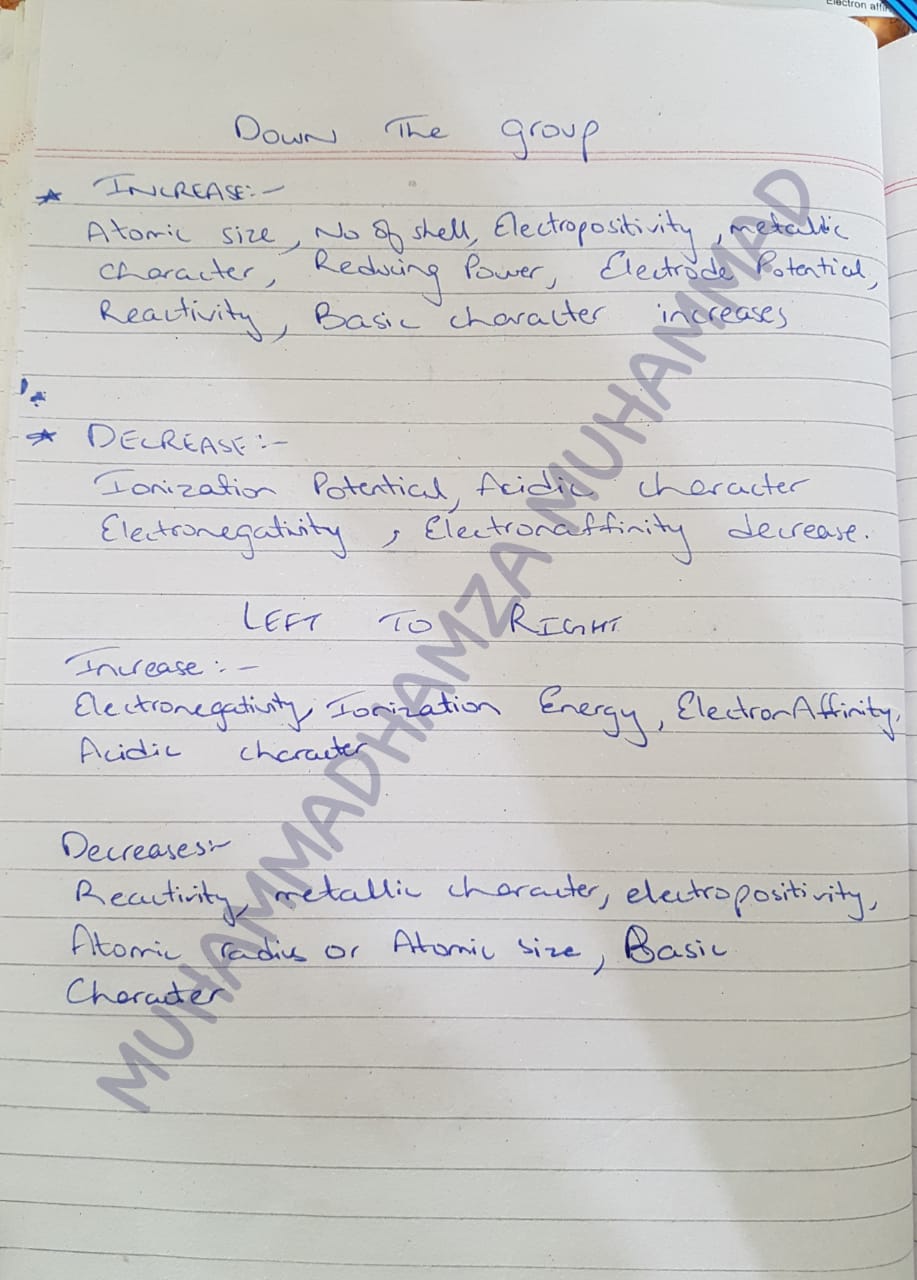 Electron affi
Down The group
* INCREASE:-
Atomic size, No of shell, Electropositivity, metallic
character, Reducing Power, Electrode Potential,
Reactivity, Basic character increases
* DECREASE:-
Ionization Potential, Acidic character
Electronegativity, Electronaffinity decrease.
LEFT TO RIGHT
Increase:-
Electronegativity, Ionization Energy, ElectronAffinity,
Acidic character
Decreases:-
Reactivity, metallic character, electropositivity,
Atomic radius or Atomic size, Basic
Character
MUHAMMADHAMZA MUHAMMAD